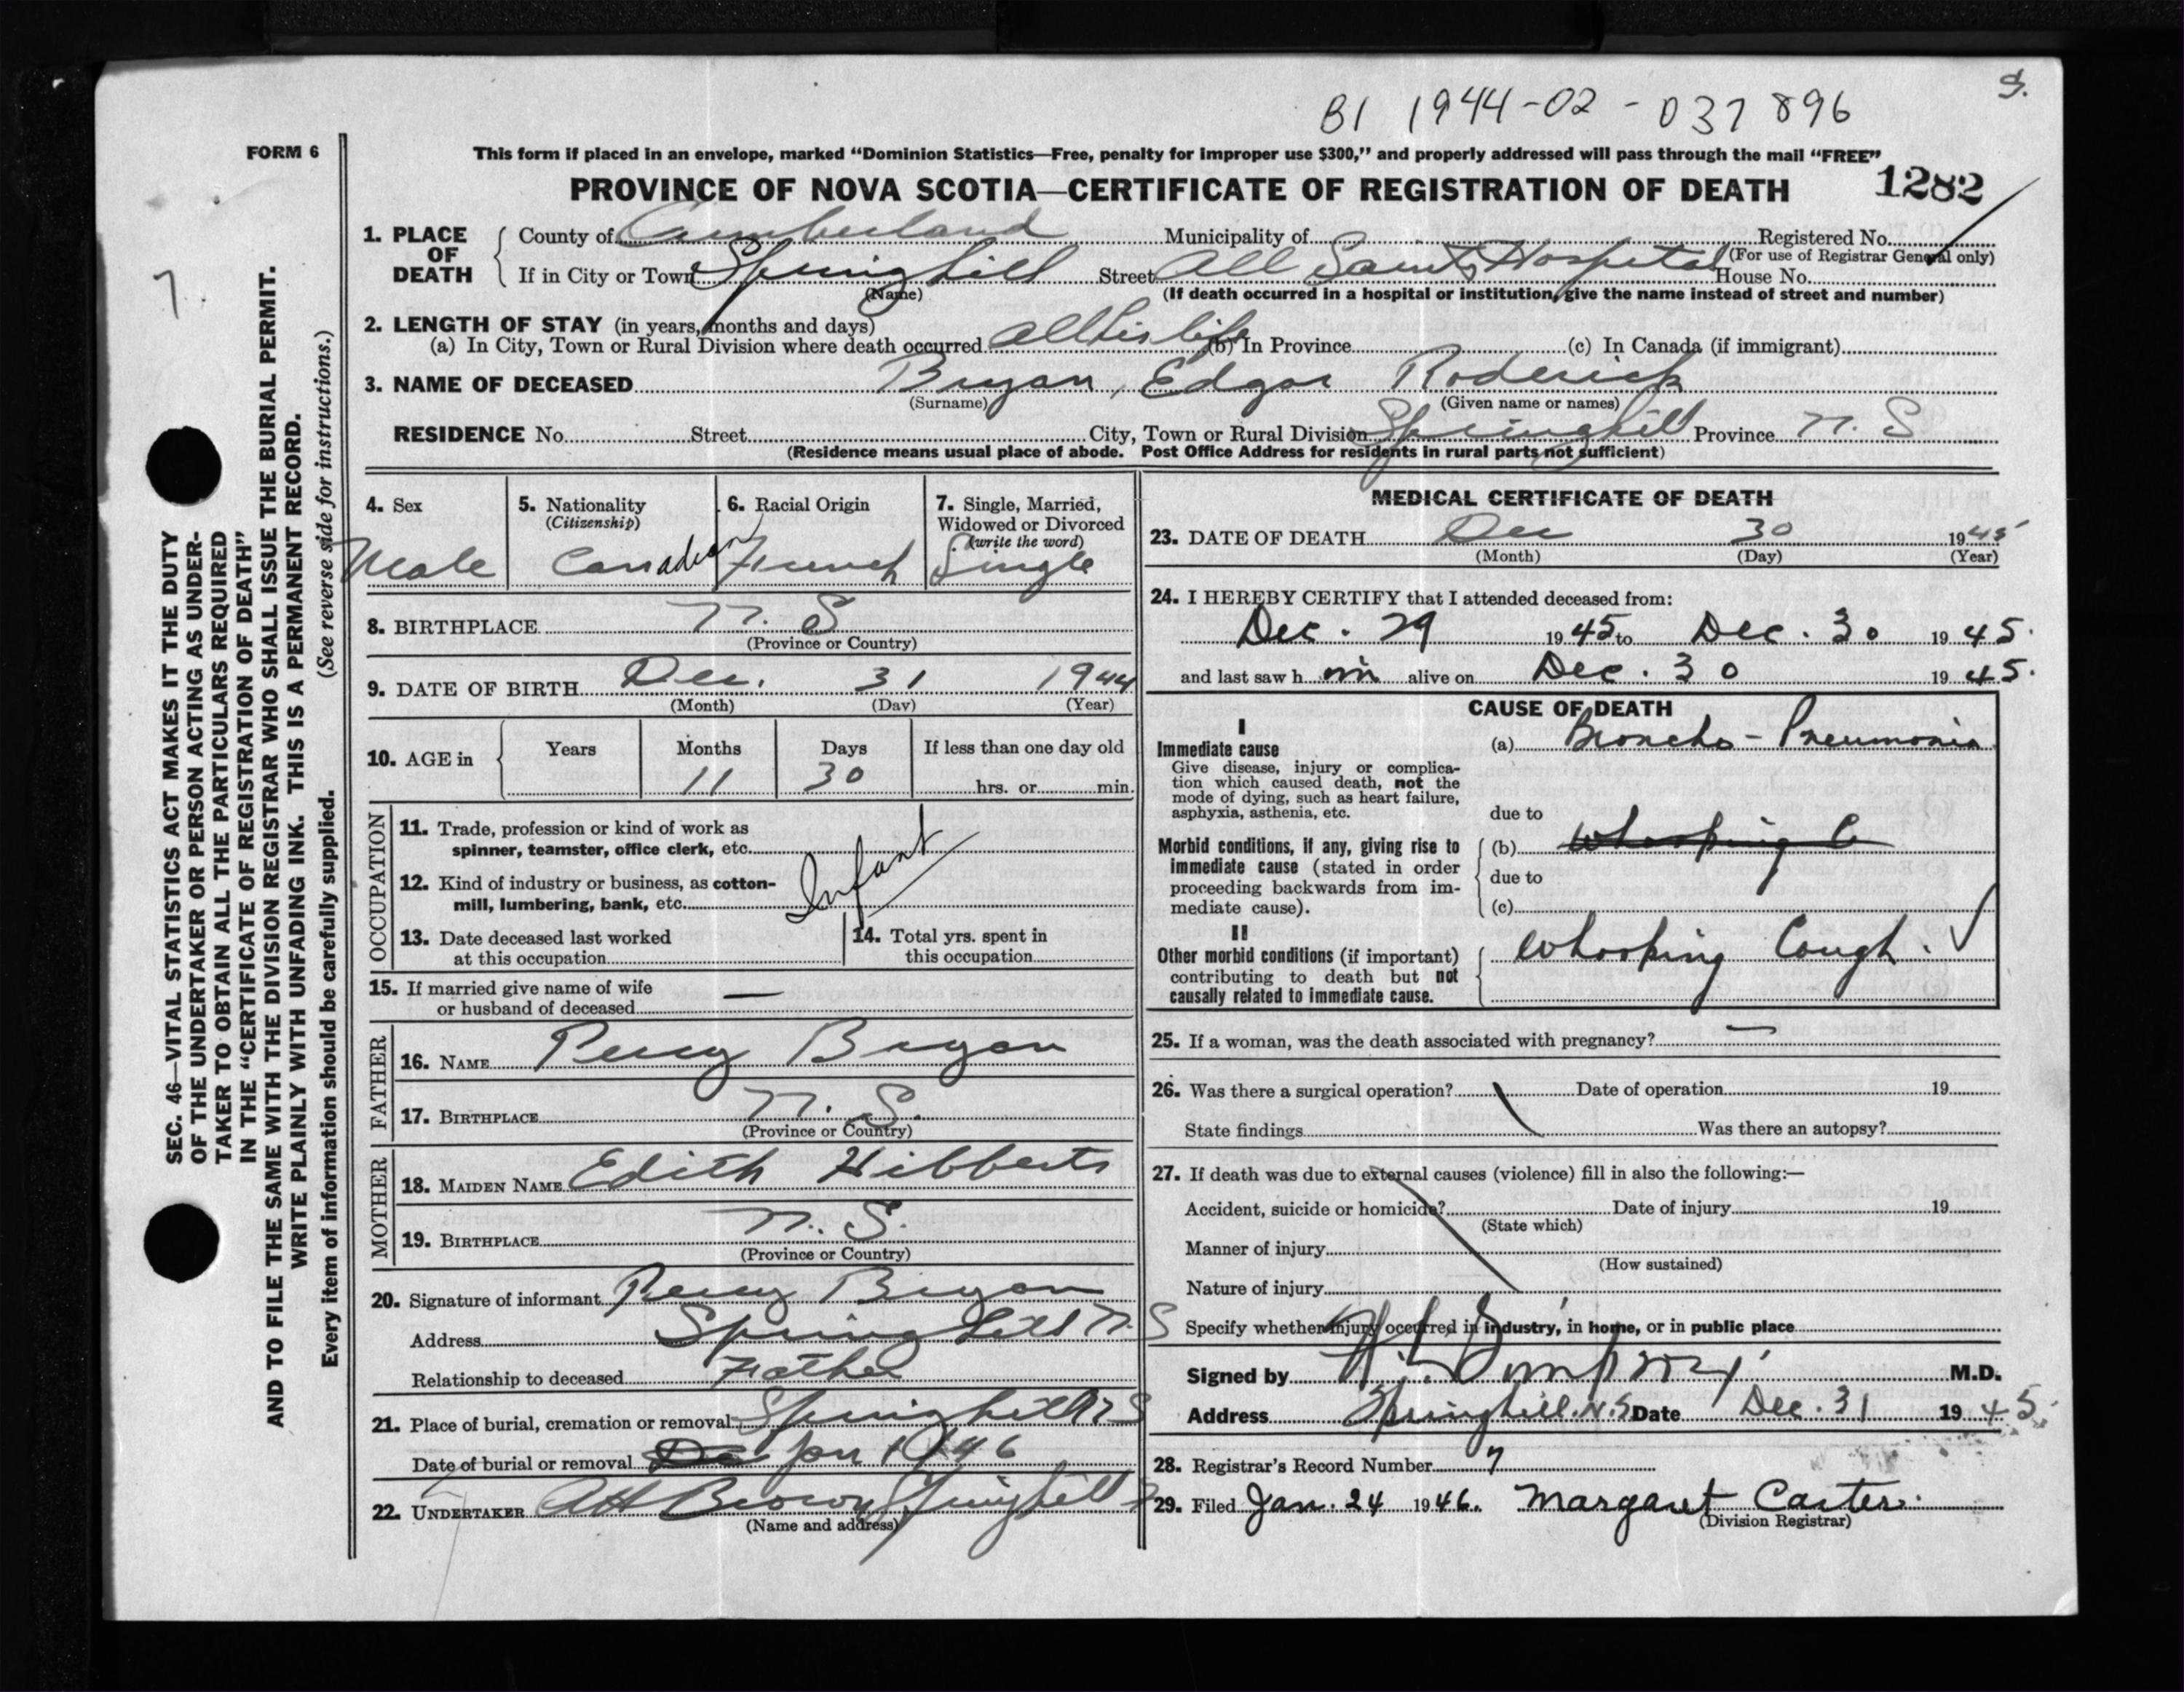 S.
B1 1944-02-037896
FORM 6
This form if placed in an envelope, marked “Dominion Statistics—Free, penalty for improper use $300,” and properly addressed will pass through the mail “FREE”
PROVINCE OF NOVA SCOTIA—CERTIFICATE OF REGISTRATION OF DEATH 1282
7.
SEC. 46—VITAL STATISTICS ACT MAKES IT THE DUTY
OF THE UNDERTAKER OR PERSON ACTING AS UNDER-
TAKER TO OBTAIN ALL THE PARTICULARS REQUIRED
IN THE “CERTIFICATE OF REGISTRATION OF DEATH”
AND TO FILE THE SAME WITH THE DIVISION REGISTRAR WHO SHALL ISSUE THE BURIAL PERMIT.
WRITE PLAINLY WITH UNFADING INK. THIS IS A PERMANENT RECORD.
Every item of information should be carefully supplied. (See reverse side for instructions.)
1. PLACE OF DEATH
County of Cumberland Municipality of Registered No.
(For use of Registrar General only)
If in City or Town Springhill Street All Saints Hospital House No.
(Name) (If death occurred in a hospital or institution, give the name instead of street and number)
2. LENGTH OF STAY (in years, months and days)
(a) In City, Town or Rural Division where death occurred all his life (b) In Province (c) In Canada (if immigrant)
3. NAME OF DECEASED Bryan, Edgar Roderick
(Surname) (Given name or names)
RESIDENCE No. Street City, Town or Rural Division Springhill Province N. S
(Residence means usual place of abode. Post Office Address for residents in rural parts not sufficient)
4. Sex 5. Nationality (Citizenship) 6. Racial Origin 7. Single, Married, Widowed or Divorced (write the word)
Male Canadian French Single
8. BIRTHPLACE N. S
(Province or Country)
9. DATE OF BIRTH Dec. 31 1944
(Month) (Day) (Year)
10. AGE in Years Months Days If less than one day old
11 30 hrs. or min.
OCCUPATION
11. Trade, profession or kind of work as
spinner, teamster, office clerk, etc.
Infant
12. Kind of industry or business, as cotton-
mill, lumbering, bank, etc.
13. Date deceased last worked
at this occupation
14. Total yrs. spent in
this occupation
15. If married give name of wife
or husband of deceased —
FATHER
16. NAME Percy Bryan
17. BIRTHPLACE N. S.
(Province or Country)
MOTHER
18. MAIDEN NAME Edith Hibberts
19. BIRTHPLACE N. S.
(Province or Country)
20. Signature of informant Percy Bryan
Address Springhill N. S
Relationship to deceased Father
21. Place of burial, cremation or removal Springhill N S
Date of burial or removal Jan 1 1946
22. UNDERTAKER A H Brown Springhill
(Name and address)
MEDICAL CERTIFICATE OF DEATH
23. DATE OF DEATH Dec 30 1945
(Month) (Day) (Year)
24. I HEREBY CERTIFY that I attended deceased from:
Dec. 29 1945 to Dec. 30 1945.
and last saw h im alive on Dec. 30 1945.
CAUSE OF DEATH
I
Immediate cause (a) Broncho-Pneumonia
Give disease, injury or complica-
tion which caused death, not the
mode of dying, such as heart failure,
asphyxia, asthenia, etc.
due to
Morbid conditions, if any, giving rise to
immediate cause (stated in order
proceeding backwards from im-
mediate cause).
(b) Whooping C
due to
(c)
II
Other morbid conditions (if important)
contributing to death but not
causally related to immediate cause.
Whooping Cough. ✓
25. If a woman, was the death associated with pregnancy? —
26. Was there a surgical operation? Date of operation 19
State findings Was there an autopsy?
27. If death was due to external causes (violence) fill in also the following:—
Accident, suicide or homicide? Date of injury 19
(State which)
Manner of injury
(How sustained)
Nature of injury
Specify whether injury occurred in industry, in home, or in public place
Signed by M.D.
Address Springhill. N.S Date Dec. 31 1945.
28. Registrar's Record Number 7
29. Filed Jan. 24 1946. Margaret Carter.
(Division Registrar)